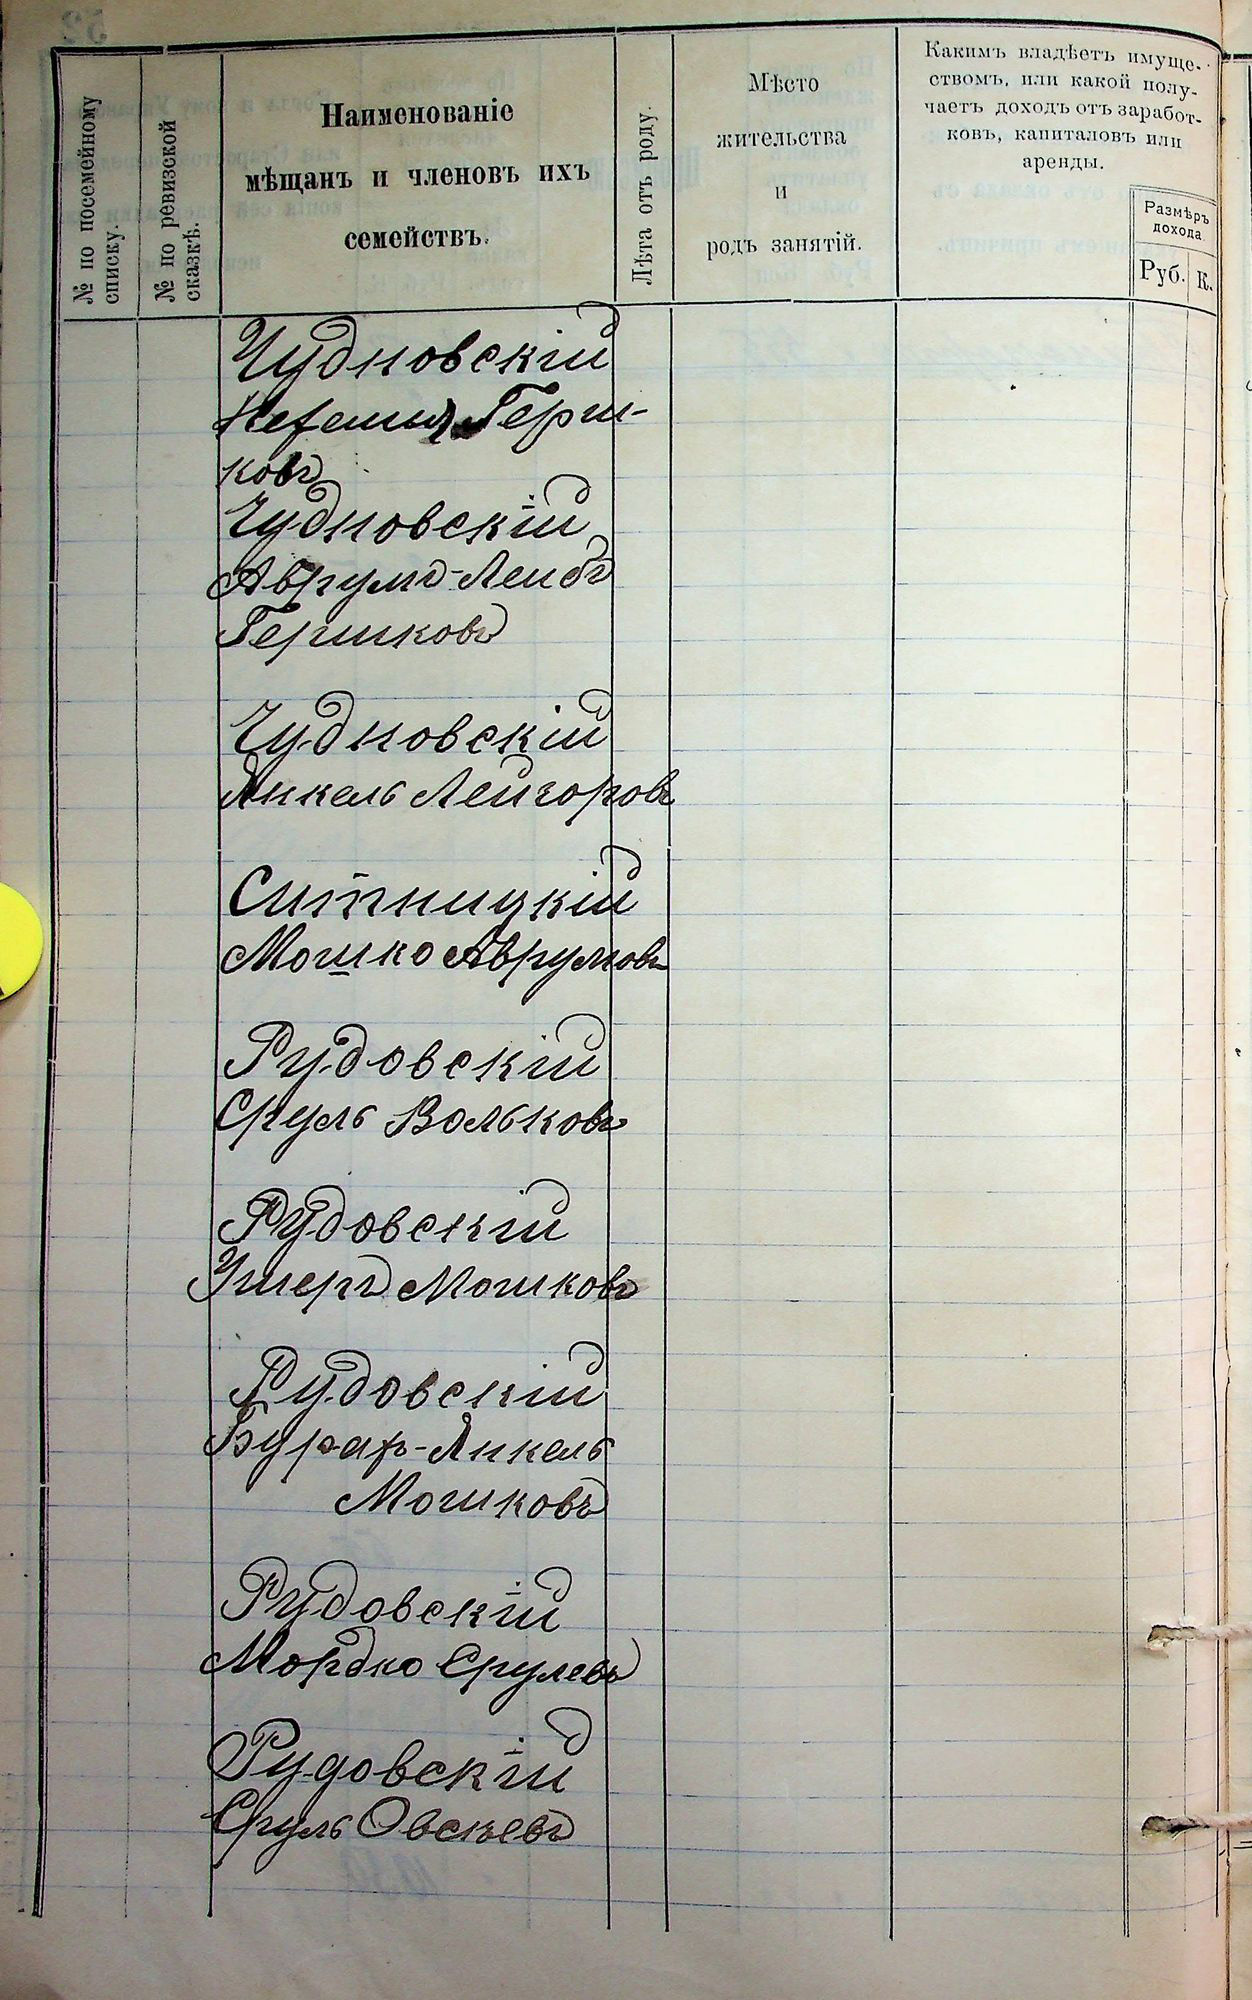 № по посемейному
списку.
№ по ревизской
сказкѣ.
Наименованіе
мѣщанъ и членовъ ихъ
семействъ.
Лѣта отъ роду.
Мѣсто
жительства
и
родъ занятій.
Какимъ владѣетъ имуще-
ствомъ, или какой полу-
чаетъ доходъ отъ заработ-
ковъ, капиталовъ или
аренды.
Размѣръ
дохода
Руб.
К.
Чудновскій
Нефемія Герш-
ковъ
Чудновскій
Аврумъ-Лейбъ
Гершковъ
Чудновскій
Янкель Лейзоровъ
Ситницкій
Мошко Аврумовъ
Рудовскій
Сруль Вольковъ
Рудовскій
Ушеръ Мошковъ
Рудовскій
-Янкель
Мошковъ
Рудовскій
Мордко Срулевъ
Рудовскій
Сруль Овсѣевъ